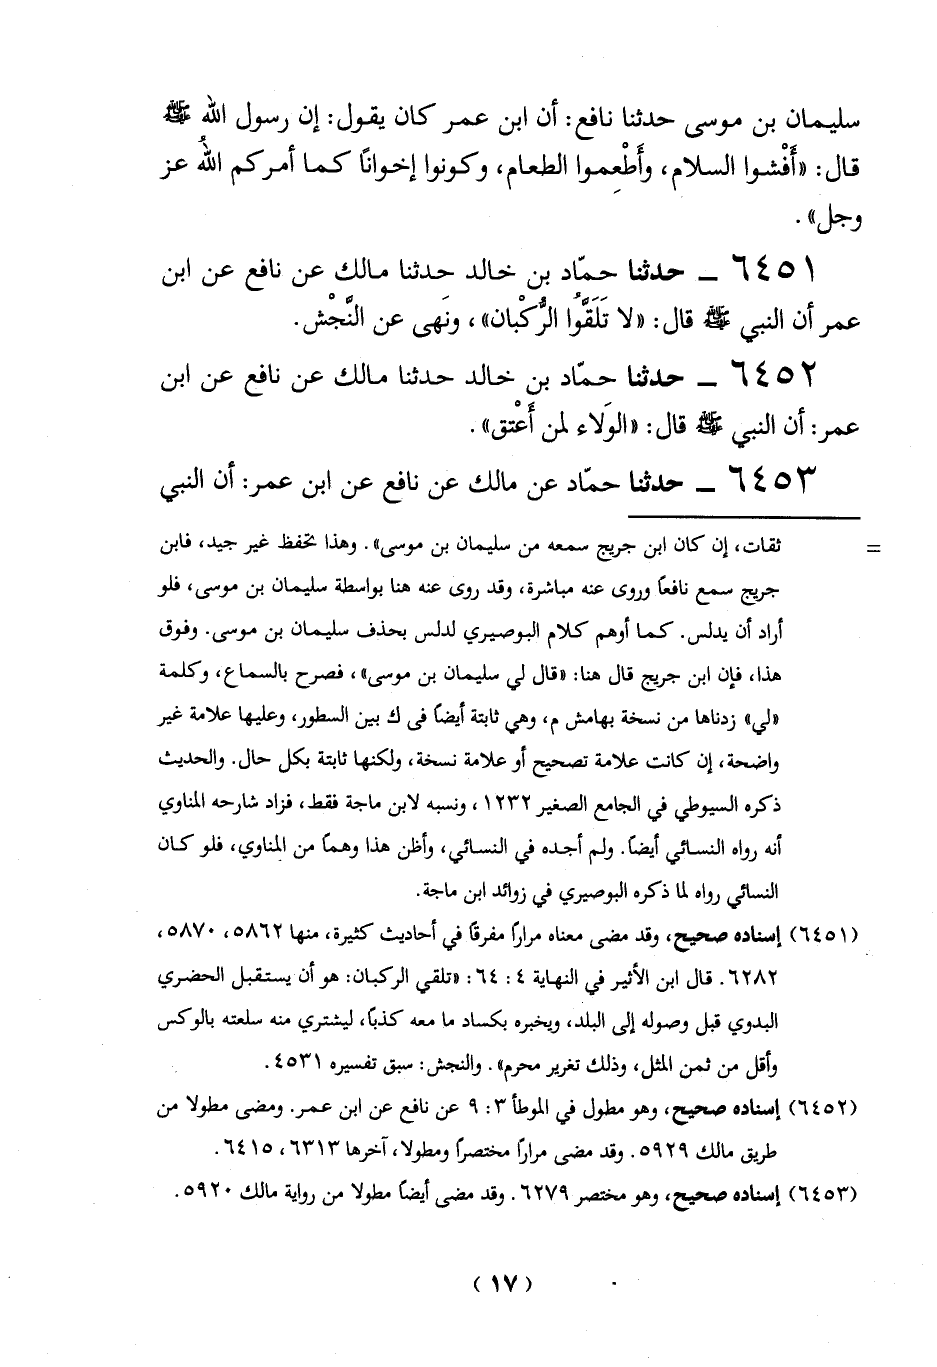 سليمان بن موسى حدثنا نافع: أن ابن عمر كان يقول: إن رسول الله ﷺ
قال: «أَفْشوا السلام، وأَطْعِموا الطعام، وكونوا إخوانًا كما أمركم اللهُ عز
وجل».
٦٤٥١ ـ حدثنا حمّاد بن خالد حدثنا مالك عن نافع عن ابن
عمر أن النبي ﷺ قال: «لا تَلَقَّوُا الرُّكْبان»، ونَهى عن النَّجْش.
٦٤٥٢ ـ حدثنا حمّاد بن خالد حدثنا مالك عن نافع عن ابن
عمر: أن النبي ﷺ قال: «الوَلاء لمن أَعْتق».
٦٤٥٣ ـ حدثنا حمّاد عن مالك عن نافع عن ابن عمر: أن النبي
= ثقات، إن كان ابن جريج سمعه من سليمان بن موسى». وهذا تحفظ غير جيد، فابن
جريج سمع نافعاً وروى عنه مباشرة، وقد روى عنه هنا بواسطة سليمان بن موسى، فلو
أراد أن يدلس. كما أوهم كلام البوصيري لدلس بحذف سليمان بن موسى. وفوق
هذا، فإن ابن جريج قال هنا: «قال لي سليمان بن موسى»، فصرح بالسماع، وكلمة
«لي» زدناها من نسخة بهامش م، وهي ثابتة أيضاً فى ك بين السطور، وعليها علامة غير
واضحة، إن كانت علامة تصحيح أو علامة نسخة، ولكنها ثابتة بكل حال. والحديث
ذكره السيوطي في الجامع الصغير ١٢٣٢، ونسبه لابن ماجة فقط، فزاد شارحه المناوي
أنه رواه النسائي أيضاً. ولم أجده في النسائي، وأظن هذا وهماً من المناوي، فلو كان
النسائي رواه لما ذكره البوصيري في زوائد ابن ماجة.
(٦٤٥١) إسناده صحيح، وقد مضى معناه مراراً مفرقاً في أحاديث كثيرة، منها ٥٨٦٢، ٥٨٧٠،
٦٢٨٢. قال ابن الأثير في النهاية ٤: ٦٤: «تلقي الركبان: هو أن يستقبل الحضري
البدوي قبل وصوله إلى البلد، ويخبره بكساد ما معه كذبا، ليشتري منه سلعته بالوكس
وأقل من ثمن المثل، وذلك تغرير محرم». والنجش: سبق تفسيره ٤٥٣١.
(٦٤٥٢) إسناده صحيح، وهو مطول في الموطأ ٣: ٩ عن نافع عن ابن عمر. ومضى مطولا من
طريق مالك ٥٩٢٩. وقد مضى مراراً مختصراً ومطولا، آخرها ٦٣١٣، ٦٤١٥.
(٦٤٥٣) إسناده صحيح، وهو مختصر ٦٢٧٩. وقد مضى أيضاً مطولا من رواية مالك ٥٩٢٠.
(١٧)